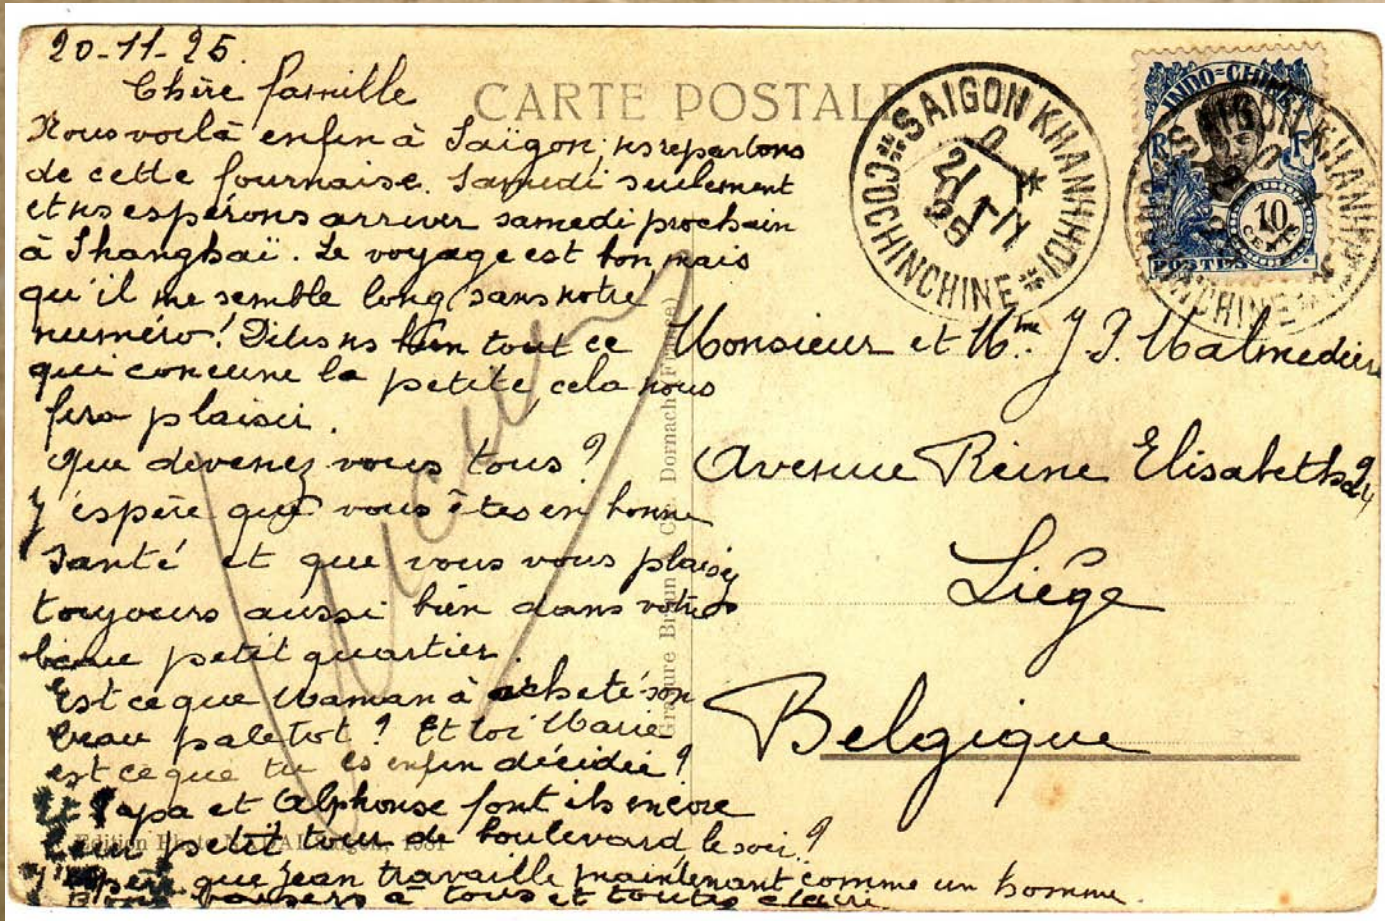 20-11-25.
Chère famille
Nous voilà enfin à Saïgon, ns repartons
de cette fournaise. Samedi seulement
et ns espérons arriver samedi prochain
à Shanghaï. Le voyage est bon, mais
qu'il me semble long sans notre
numéro! Dites ns bien tout ce
qui concerne la petite cela nous
fera plaisir.
Que devenez vous tous?
J'espère que vous êtes en bonne
santé et que vous vous plaisez
toujours aussi bien dans votre
beau petit quartier.
Est ce que Maman à acheté son
beau paletot? Et toi Marie
est ce que tu es enfin décidée?
Et Papa et Alphonse font ils encore
leur petit tour de boulevard le soir?
J'espère que Jean travaille maintenant comme un homme.
Bons baisers à tous et toutes Claire
CARTE POSTALE
SAIGON KHANHHOI
21-11
25
COCHINCHINE
INDO-CHINE
R F
10
CENTS
POSTES
SAIGON KHANHHOI
COCHINCHINE
Monsieur et Mme J. J. Malmedier
Avenue Reine Elisabeth
Liége
Belgique
Gravure Braun & Cie. Dornach (France)
Edition Photo NADAL Saigon 1931